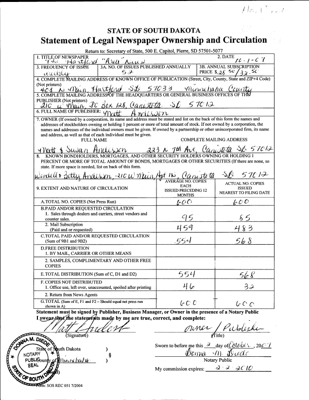 STATE OF SOUTH DAKOTA
Statement of Legal Newspaper Ownership and Circulation
Return to: Secretary of State, 500 E. Capitol, Pierre, SD 57501-5077
1. TITLE OF NEWSPAPER
2. DATE
Hartford Area News
3. FREQUENCY OF ISSUE
3A. NO. OF ISSUES PUBLISHED ANNUALLY
3B. ANNUAL SUBSCRIPTION
PRICE $
weekly
52
4. COMPLETE MAILING ADDRESS OF KNOWN OFFICE OF PUBLICATION (Street, City, County, State and ZIP+4 Code)
(Not printers)
Main, Hartford SD Minnehaha County
5. COMPLETE MAILING ADDRESS OF THE HEADQUARTERS OR GENERAL BUSINESS OFFICES OF THE
PUBLISHER (Not printers)
Main Canistota SD 57012
6. FULL NAME OF PUBLISHER:
Matt Anderson
7. OWNER (If owned by a corporation, its name and address must be stated and list on the back of this form the names and
addresses of stockholders owning or holding 1 percent or more of total amount of stock. If not owned by a corporation, the
names and addresses of the individual owners must be given. If owned by a partnership or other unincorporated firm, its name
and address, as well as that of each individual must be given.
FULL NAME
COMPLETE MAILING ADDRESS
Matt & Anderson Canistota SD 57012
8. KNOWN BONDHOLDERS, MORTGAGES, AND OTHER SECURITY HOLDERS OWNING OR HOLDING 1
PERCENT OR MORE OF TOTAL AMOUNT OF BONDS, MORTGAGES OR OTHER SECURITIES (If there are none, so
state. If more space is needed, list on back of this form.
Anderson, Main Canistota SD 57012
9. EXTENT AND NATURE OF CIRCULATION
AVERAGE NO. COPIES
EACH
ISSUED PRECEDING 12
MONTHS
ACTUAL NO. COPIES
ISSUED
NEAREST TO FILING DATE
A. TOTAL NO. COPIES (Net Press Run)
600
600
B. PAID AND/OR REQUESTED CIRCULATION
1. Sales through dealers and carriers, street vendors and
counter sales.
95
85
2. Mail Subscription
(Paid and or requested)
459
483
C. TOTAL PAID AND/OR REQUESTED CIRCULATION
(Sum of 9B1 and 9B2)
554
568
D. FREE DISTRIBUTION
1. BY MAIL, CARRIER OR OTHER MEANS
2. SAMPLES, COMPLIMENTARY AND OTHER FREE
COPIES
E. TOTAL DISTRIBUTION (Sum of C, D1 and D2)
554
568
F. COPIES NOT DISTRIBUTED
1. Office use, left over, unaccounted, spoiled after printing
46
32
2. Return from News Agents
G. TOTAL (Sum of E, F1 and F2 – Should equal net press run
shown in A)
600
600
Statement must be signed by Publisher, Business Manager, or Owner in the presence of a Notary Public
I swear that the statements made by me are true, correct, and complete:
Matt Anderson
owner / Publisher
(Signature)
(Title)
State of South Dakota )
County of Minnehaha )
Sworn to before me this day of
Notary Public
My commission expires:
DONNA M.
NOTARY
PUBLIC
SEAL
SOUTH
Form: SOS REC 051 7/2004